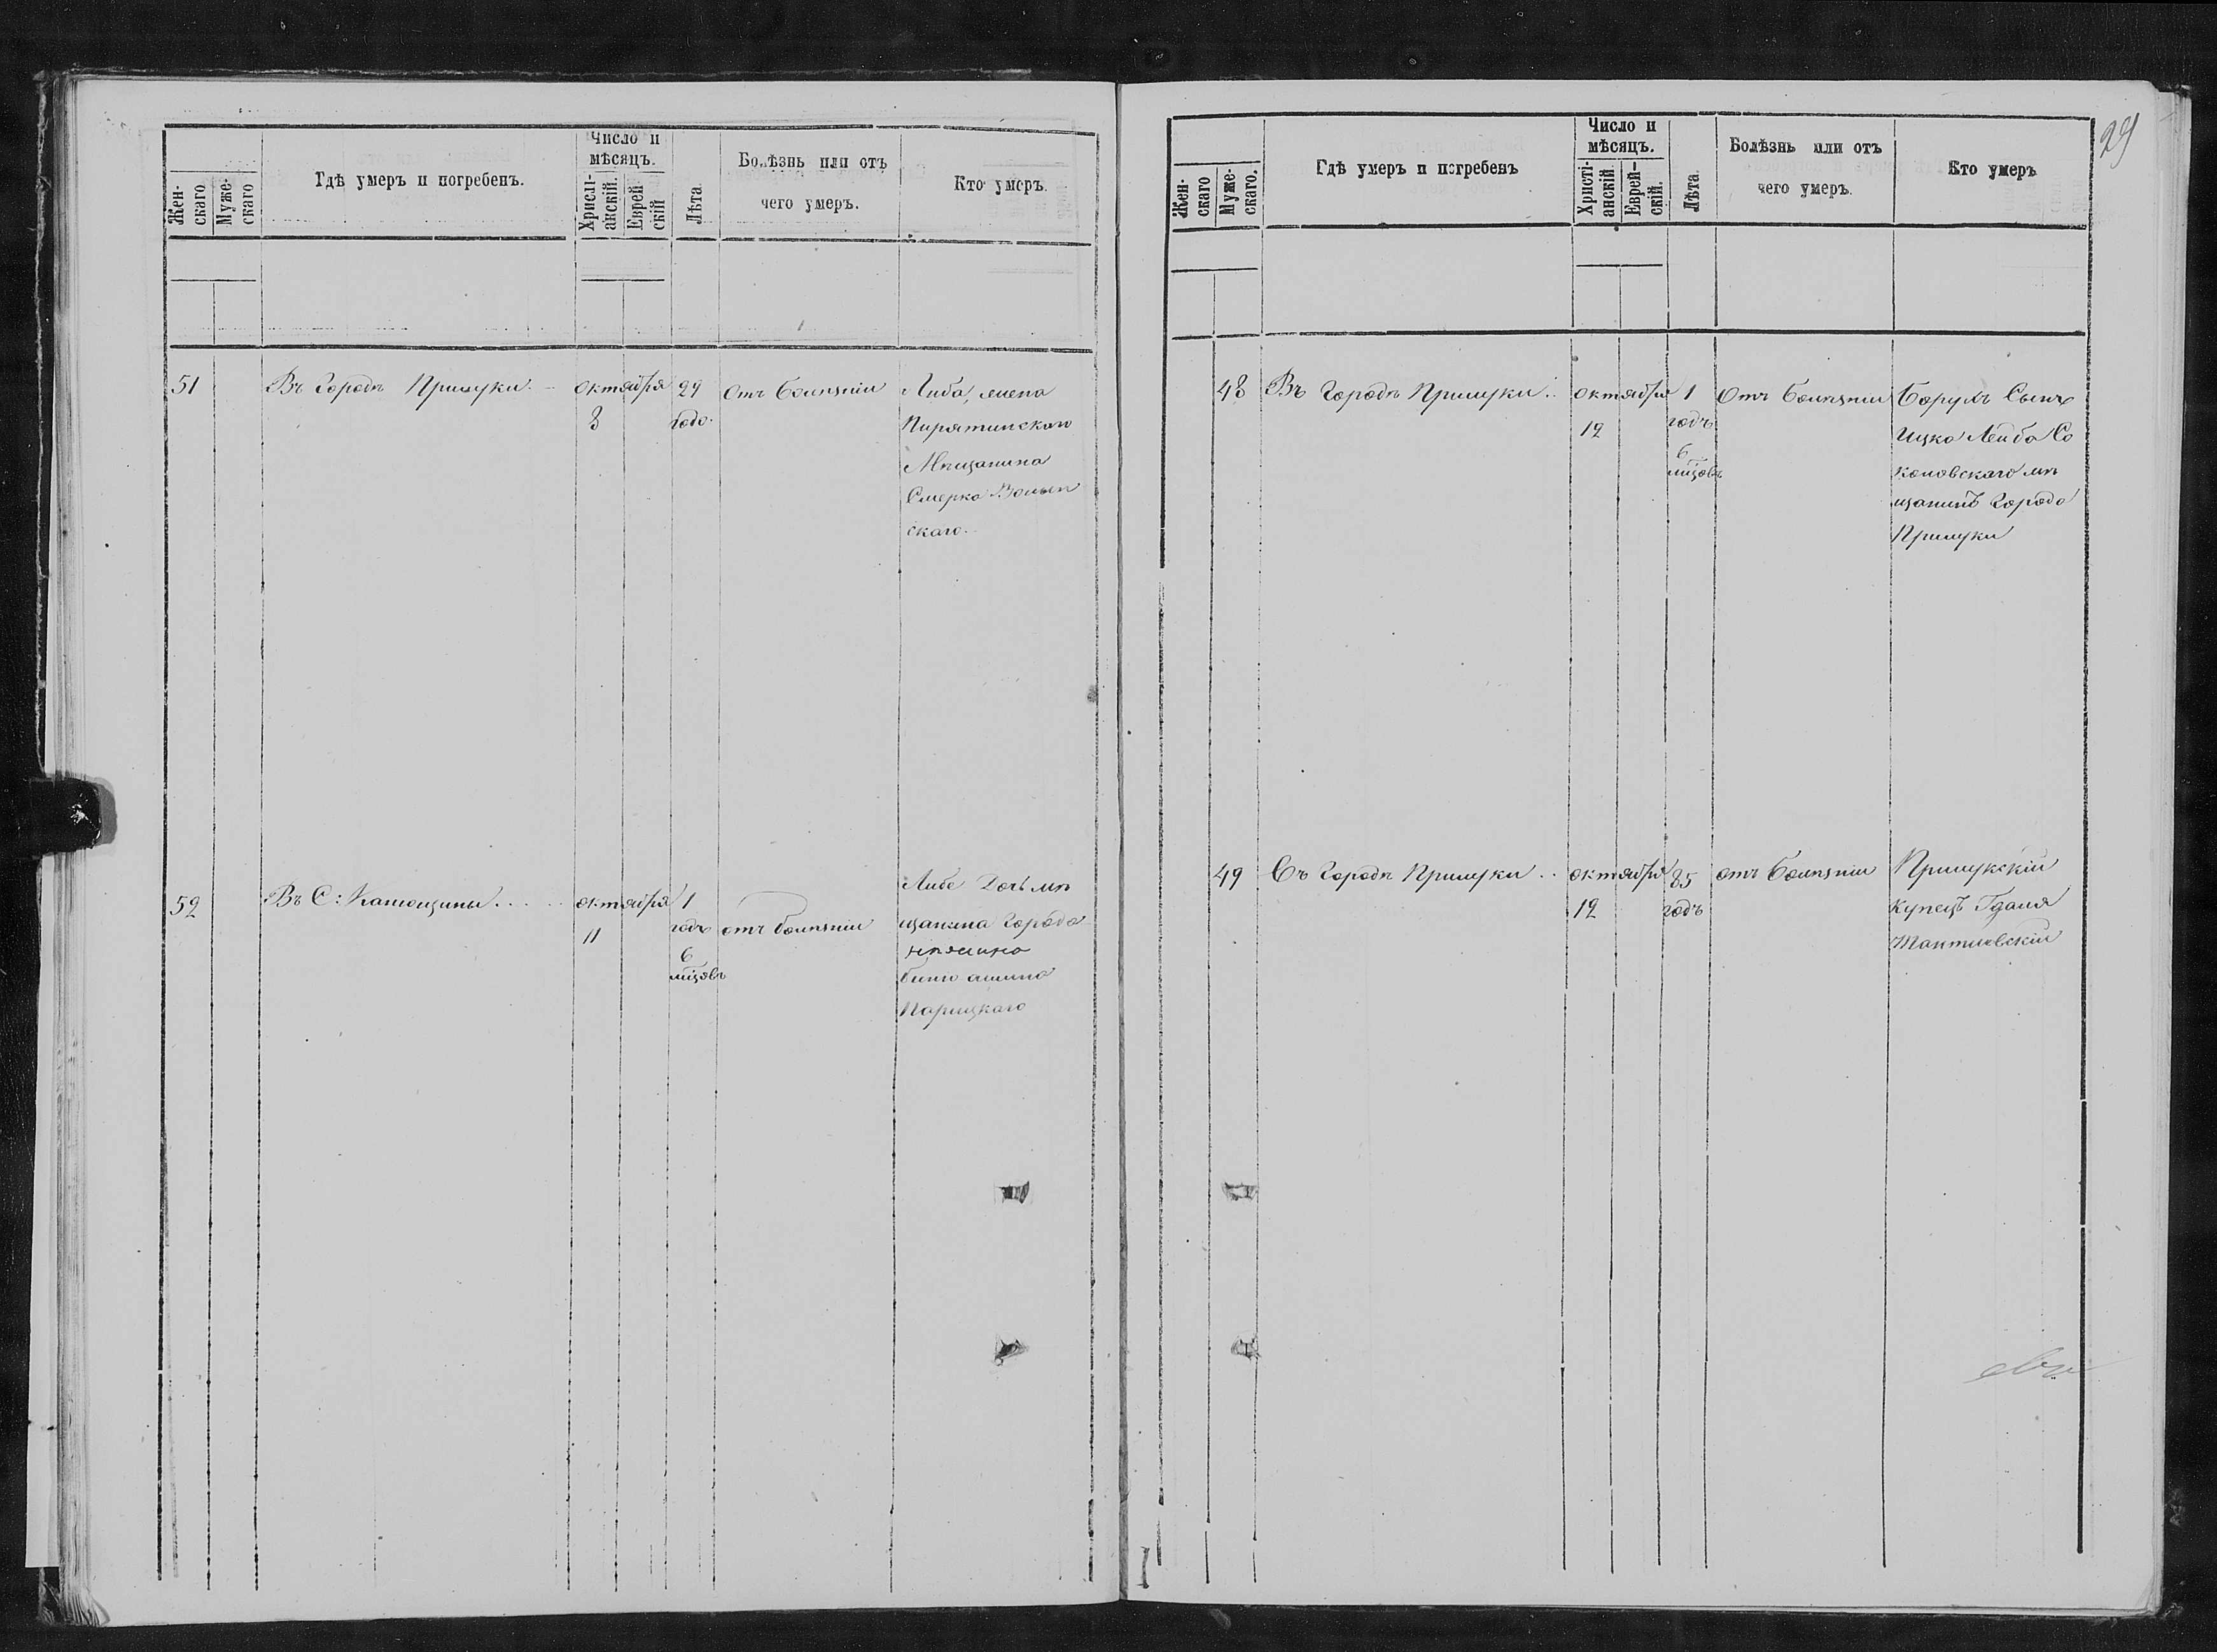 Жен-
скаго
Муже-
скаго
Гдѣ умеръ и погребенъ.
Число и
мѣсяцъ.
Христі-
анскій.
Еврей-
скій
Лѣта
Болѣзнь или отъ
чего умеръ.
Кто умеръ.
51
Въ Городѣ Прилуки
октября
8
29
годо.
отъ болѣзни
Либа, жена
Пирятинскаго
Мѣщанина
Смерка Волын
скаго
52
Въ С:
октября
11
1
годъ
6
мцовъ
отъ болѣзни
Либе Дочь мѣ
щанина Города
Нѣжина
бинюамина
Парицкаго
29
Жен-
скаго
Муже-
скаго.
Гдѣ умеръ и погребенъ
Число и
мѣсяцъ.
Христі-
анскій.
Еврей-
скій.
Лѣта
Болѣзнь или отъ
чего умеръ.
Кто умеръ
48
Въ городѣ Прилуки
октября
12
1
годъ
6
мцовъ
Отъ болѣзни
Борухъ Сынъ
Ицко Лейба Со
коловскаго мѣ
щанинъ Города
Прилуки
49
Въ Городѣ Прилуки
октября
12
85
годъ
отъ болѣзни
Прилукскій
купецъ Гдаля